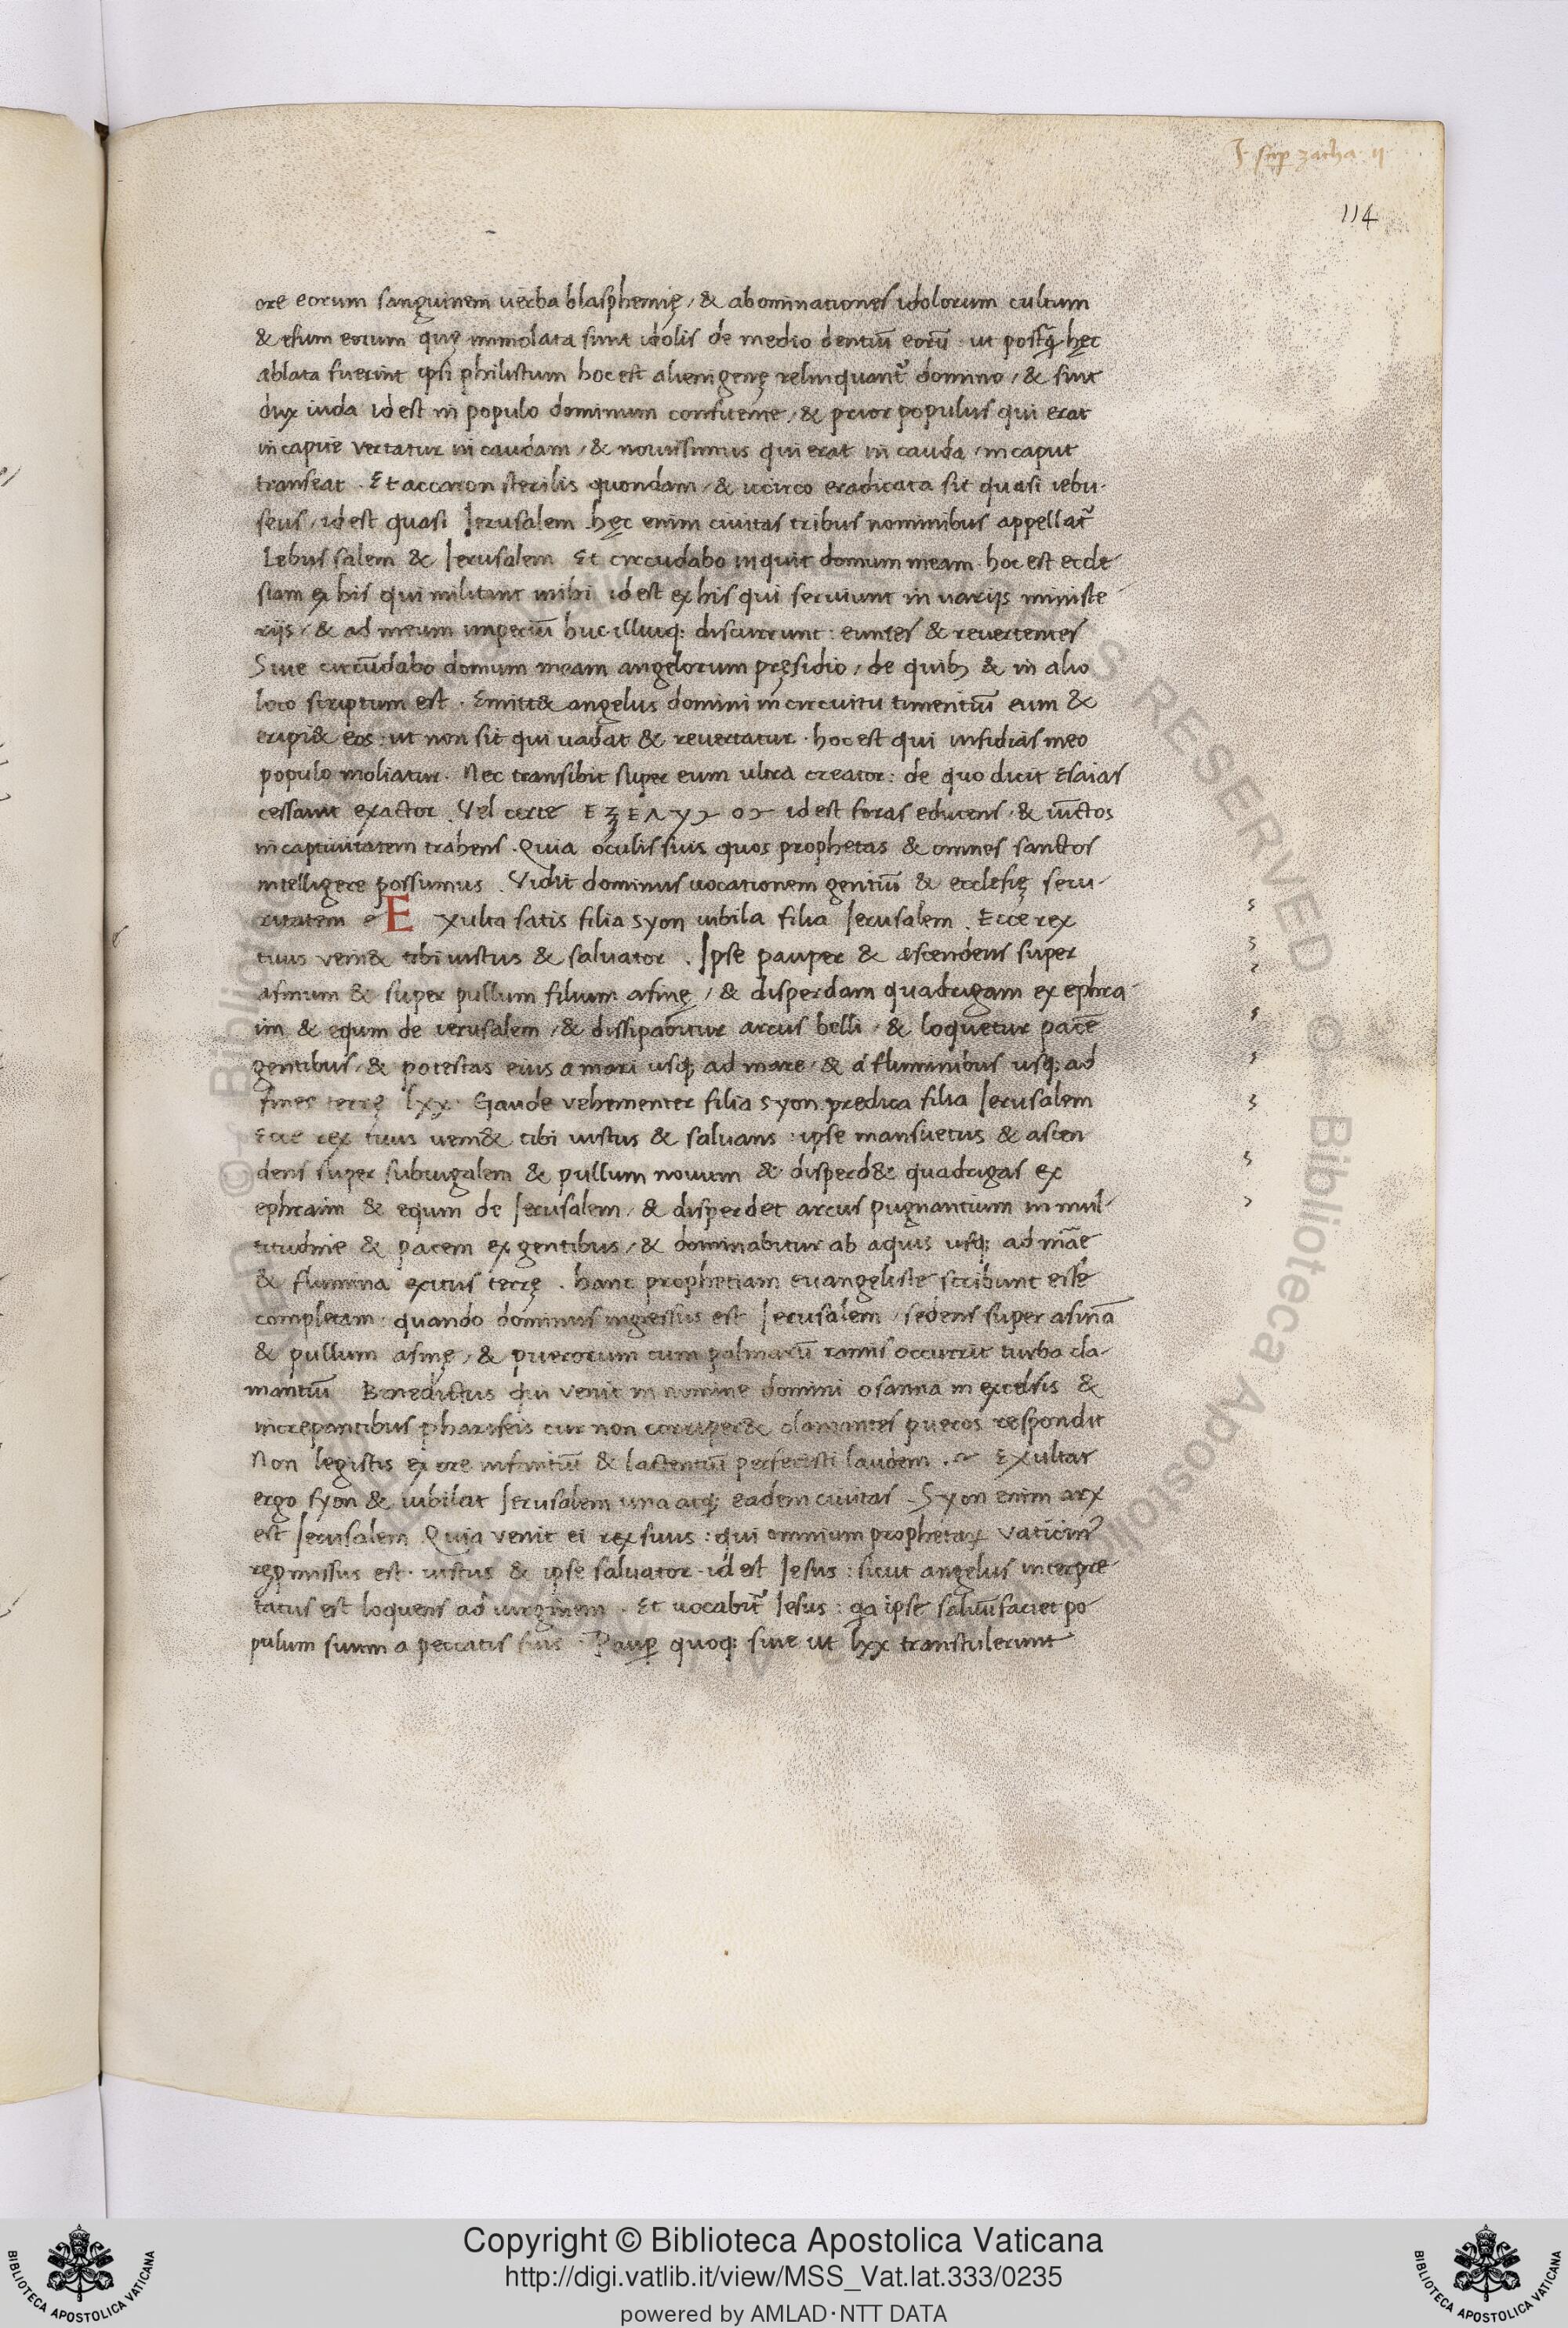 J. sup zacha. II
114
ore eorum sanguinem uerba blasphemię / & abominationes idolorum cultum
& esum eorum quę immolata sunt idolis de medio dentiū eorū · ut postq̄ hęc
ablata fuerint ipsi philistiim hoc est alienigenę relinquant᷑ domino / & sint
dux iuda id est in populo dominum confitente / & prior populus qui erat
in capite vertatur in caudam / & nouissimus qui erat in cauda / in caput
transeat . Et accaron sterilis quondam / & iccirco eradicata sit quasi iebu-
seus / id est quasi Jerusalem . hęc enim ciuitas tribus nominibus appellat᷑
Iebus salem & Jerusalem Et circūdabo inquit domum meam · hoc est eccle-
siam ex his qui militant mihi id est ex his qui seruiunt in uarijs ministe-
rijs / & ad meum imperiū huc illucq; discurrunt : euntes & reuertentes
Siue circūdabo domum meam angelorum pręsidio / de quibȝ & in alio
loco scriptum est . Emitt& angelus domini in circuitu timentiū eum &
eripi& eos : ut non sit qui uadat & reuertatur · hoc est qui insidias meo
populo moliatur . Nec transibit super eum ultra creator : de quo dicit Esaias
cessauit exactor . Vel certe ΕΞΕΛΥϽ ΟϽ id est foras educens · & iūctos
in captiuitatem trahens . Quia oculis suis quos prophetas & omnes sanctos
intelligere possumus . Vidit dominus uocationem gentiū & ecclesię secu-
ritatem e E xulta satis filia syon iubila filia Jerusalem . Ecce rex
tuus ueni& tibi iustus & saluator . Ipse pauper & ascendens super
asinum & super pullum filium asinę / & disperdam quadrigam ex ephra-
im & equm de ierusalem / & dissipabitur arcus belli / & loquetur pacē
gentibus / & potestas eius a mari usq; ad mare / & a fluminibus usq; ad
fines terrę lxx. Gaude vehementer filia syon predica filia Jerusalem
Ecce rex tuus ueni& tibi iustus & saluans : ipse mansuetus & ascen
dens super subiugalem & pullum nouum & disperd& quadrigas ex
ephraim & equm de Jerusalem / & disperdet arcus pugnantium in mul-
titudine & pacem ex gentibus / & dominabitur ab aquis usq; ad mare
& flumina exitus terrę . hanc prophetiam euangeliste scribunt esse
completam : quando dominus ingressus est Jerusalem / sedens super asinā
& pullum asinę / & puerorum cum palmarū ramis occurrit turba cla-
mantiū Benedictus qui venit in nomine domini osanna in excelsis &
increpantibus phariseis cur non corriper& clamantes pueros respondit
Non legistis ex ore infantiū & lactentiū perfecisti laudem . Exultat
ergo syon & iubilat Jerusalem una atq; eadem ciuitas . Syon enim arx
est Jerusalem Quia venit ei rex suus : qui omnium prophetaꝝ vaticin᷑
repmissus est · iustus & ipse saluator · id est Jesus : sicut angelus interpre-
tatus est loquens ad uirginem . Et uocabit᷑ Jesus : qa ipse saluū faciet po-
pulum suum a peccatis suis . Paup quoq; siue ut lxx transtulerunt
© Biblioteca Apostolica
RIGHTS RESERVED © Biblioteca Apostolica
BIBLIOTECA APOSTOLICA VATICANA
Copyright © Biblioteca Apostolica Vaticana
http://digi.vatlib.it/view/MSS_Vat.lat.333/0235
powered by AMLAD·NTT DATA
BIBLIOTECA APOSTOLICA VATICANA